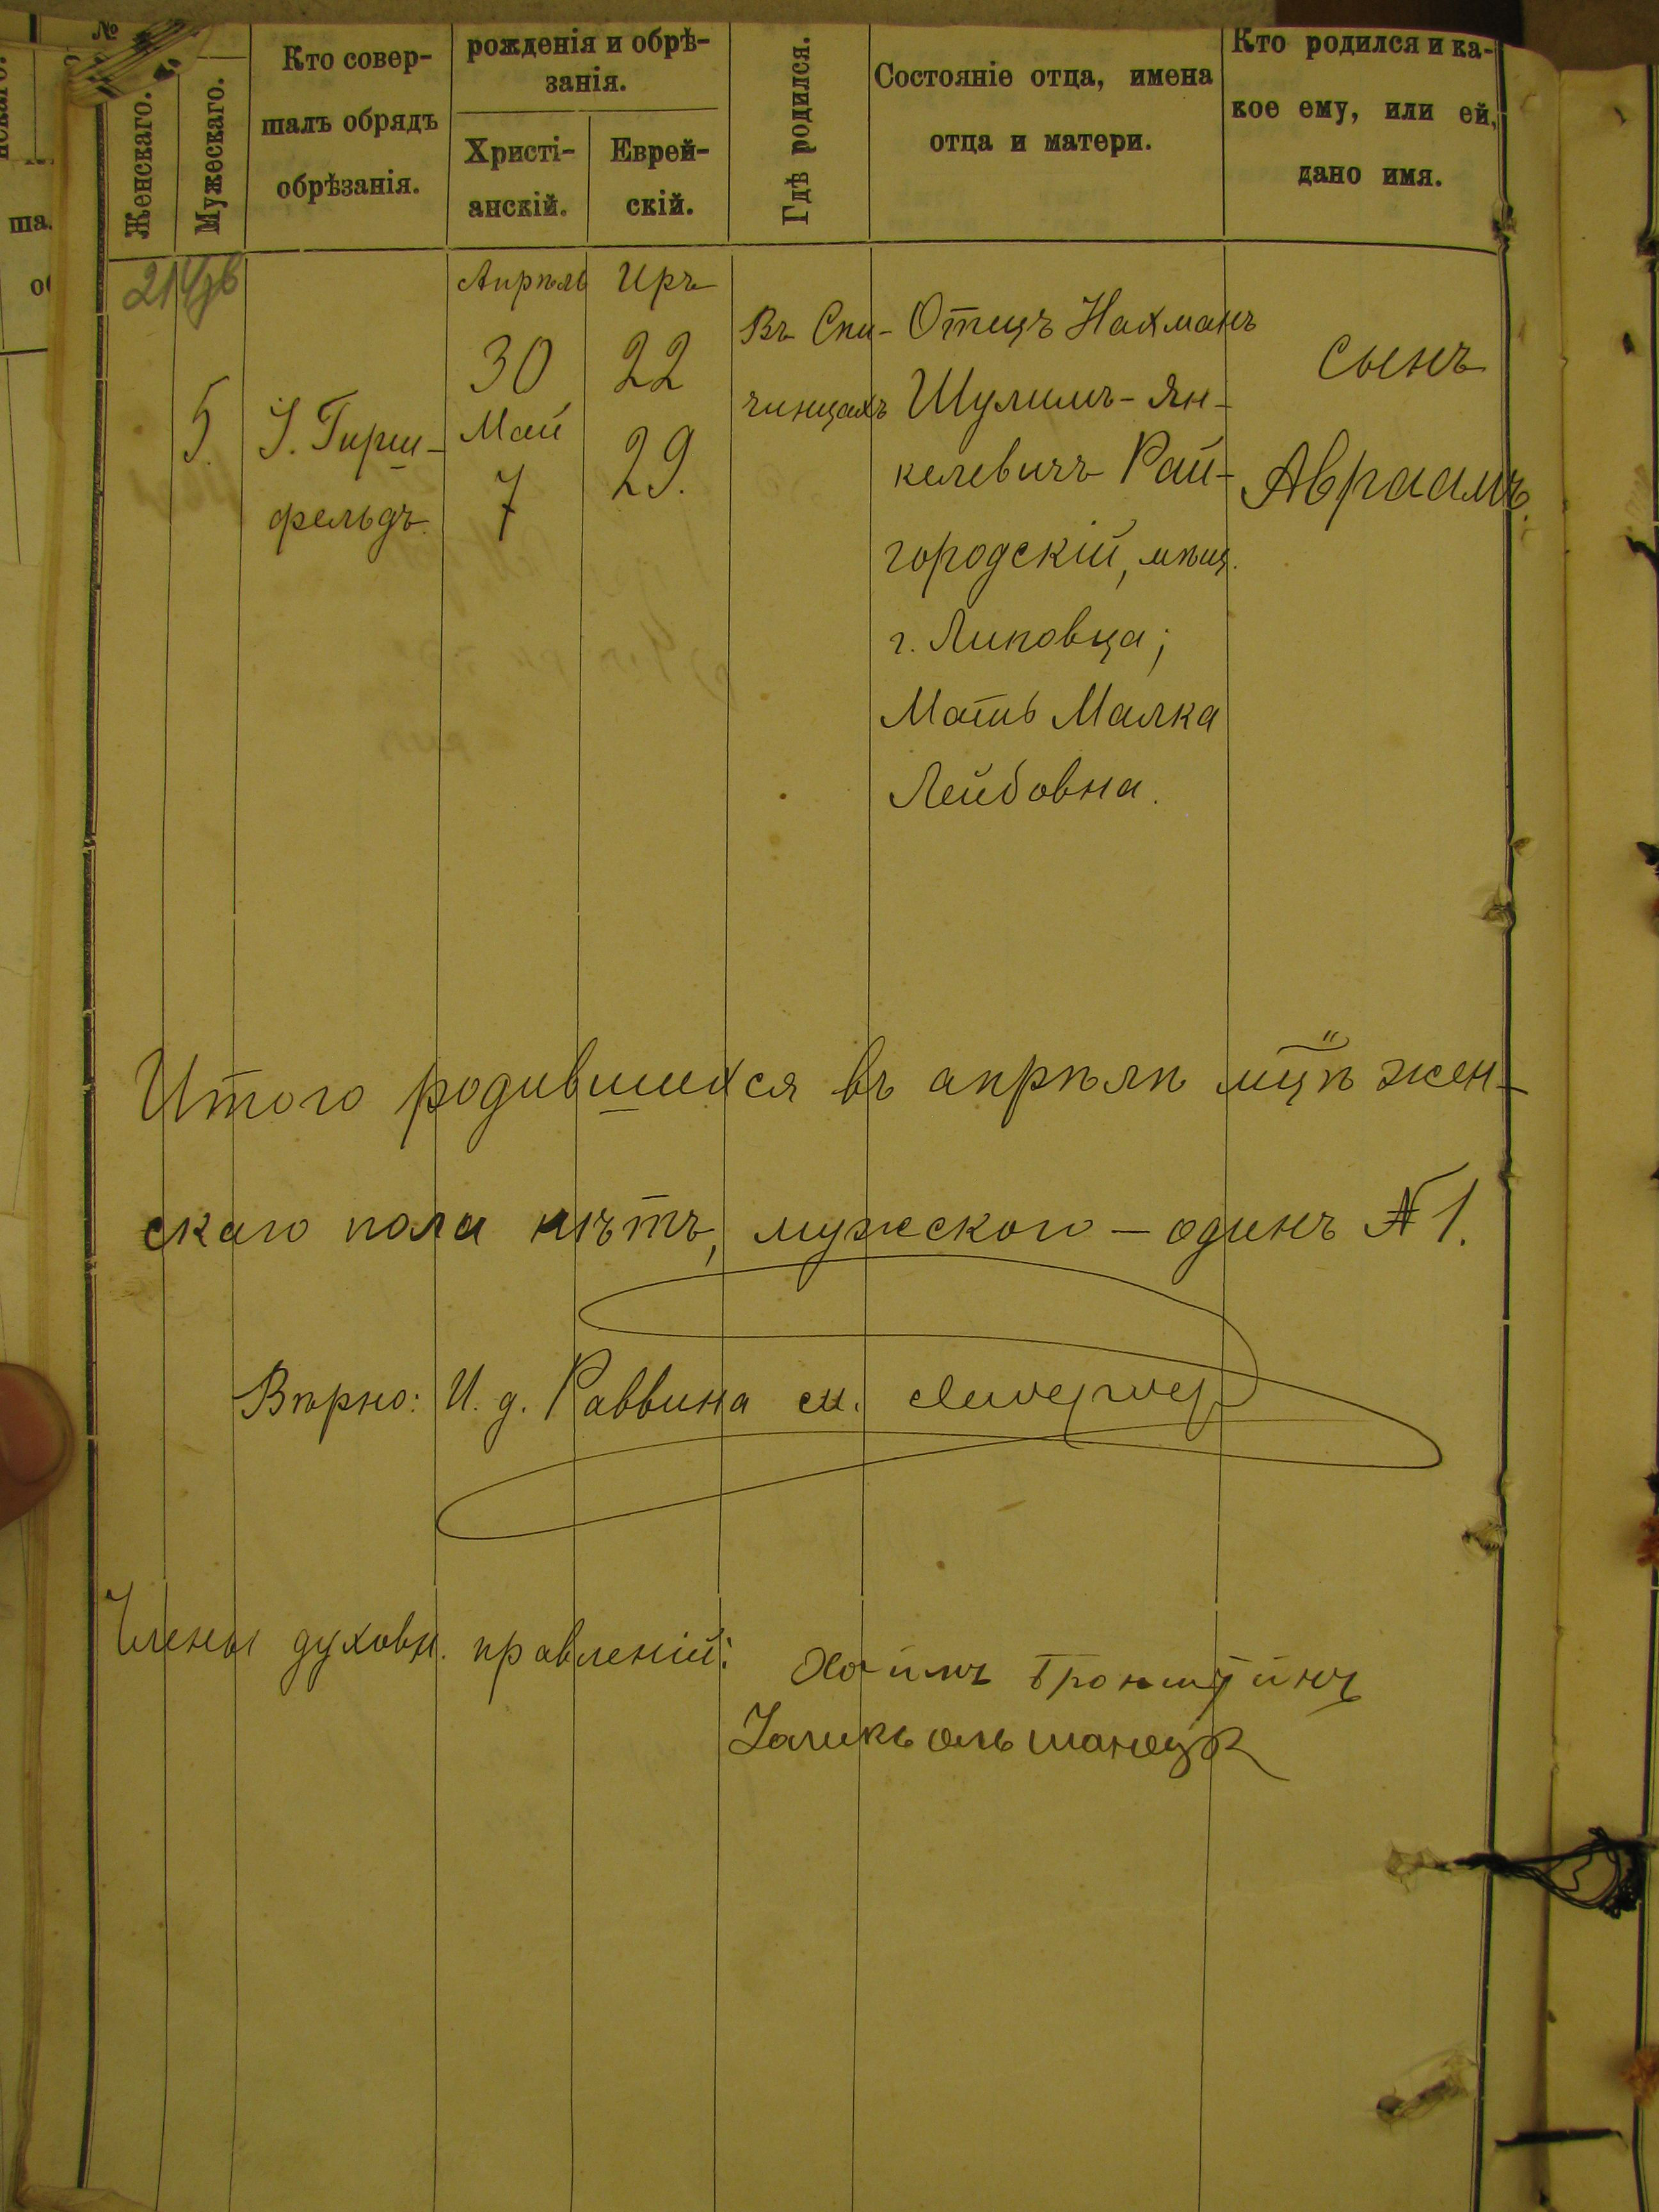 №
Женскаго.
Мужескаго.
Кто совер-
шалъ обрядъ
обрѣзанія.
рожденія и обрѣ-
занія.
Христі-
анскій.
Еврей-
скій.
Гдѣ родился.
Состояніе отца, имена
отца и матери.
Кто родился и ка-
кое ему, или ей,
дано имя.
5.
І. Гирш-
фельдъ.
Апрѣль
30
Май
7
Иръ
22
29.
Въ Спи-
чинцахъ
Отецъ Нахманъ
Шулимъ-Ян-
келевичъ Рай-
городскій, мѣщ.
г. Липовца;
Мать Малка
Лейбовна.
сынъ
Авраамъ.
Итого родившихся въ апрѣлѣ мцѣ жен-
скаго пола нѣтъ, мужскаго — одинъ № 1.
Вѣрно: И. д. Раввина
Члены духовн. правленій:
Хаймъ Бронштейнъ